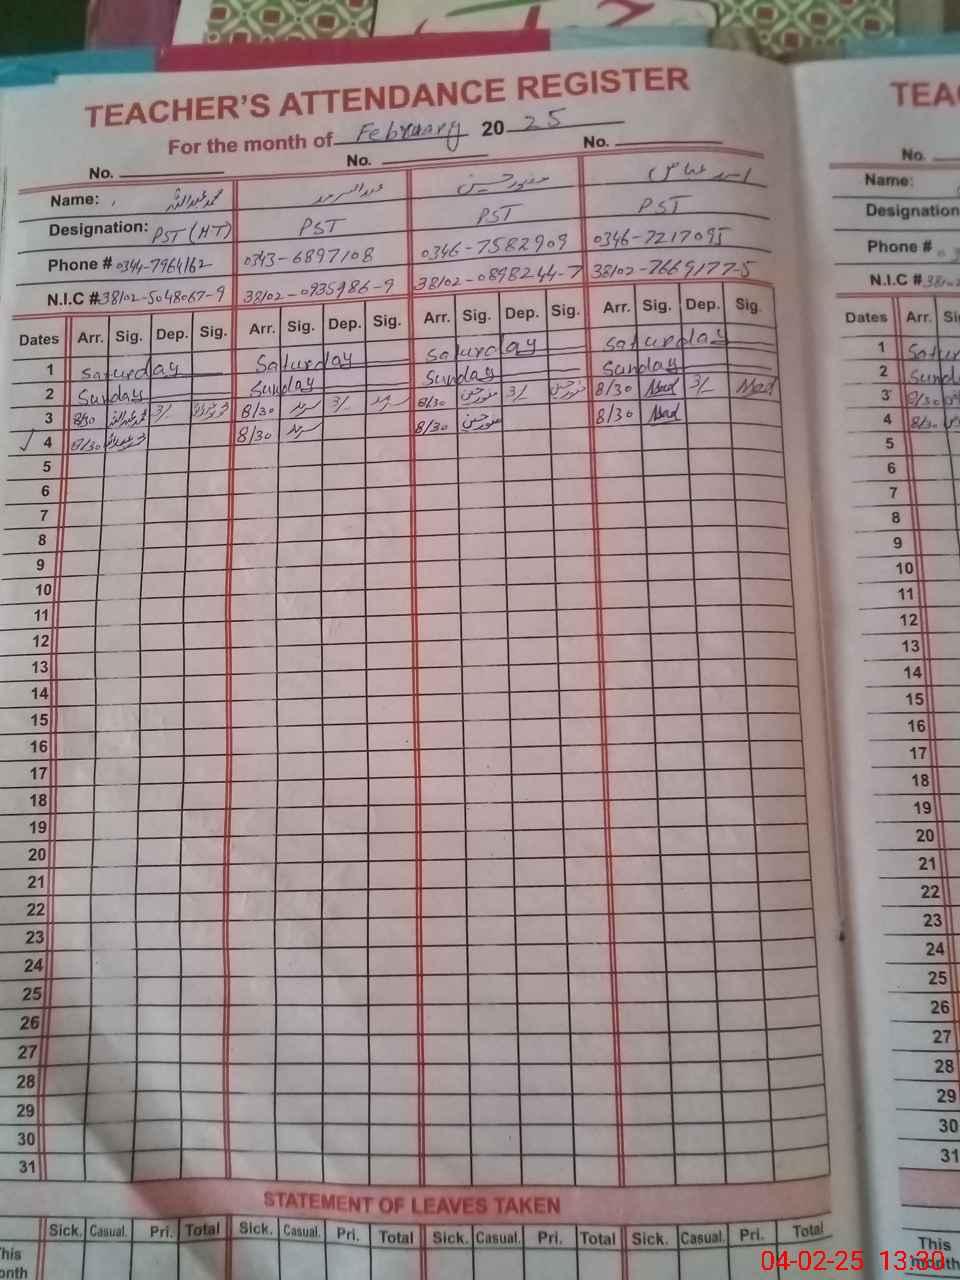 TEACHER'S ATTENDANCE REGISTER
For the month of February 2025
No. No. No.
Name: محمد عبداللہ عبدالسرمد منور حسین اسد عباس
Designation: PST (HT) PST PST PST
Phone # 0344-7964162 0343-6897108 0346-7582909 0346-7217095
N.I.C # 38102-5048067-9 38102-0935986-9 38102-0898244-7 38102-7669177-5
Dates Arr. Sig. Dep. Sig. Arr. Sig. Dep. Sig. Arr. Sig. Dep. Sig. Arr. Sig. Dep. Sig.
1 Saturday Saturday Saturday Saturday
2 Sunday Sunday Sunday Sunday
3 8/30 3/ 8/30 سرمد 3/ سرمد 8/30 منور حسین 3/ منور حسین 8/30 Asad 3/ Asad
4 8/30 8/30 سرمد 8/30 منور حسین 8/30 Asad
5
6
7
8
9
10
11
12
13
14
15
16
17
18
19
20
21
22
23
24
25
26
27
28
29
30
31
STATEMENT OF LEAVES TAKEN
Sick. Casual. Pri. Total Sick. Casual. Pri. Total Sick. Casual. Pri. Total Sick. Casual. Pri. Total
This
month
TEA
No.
Name:
Designation
Phone #
N.I.C #
Dates Arr.
1
2
3
4
5
6
7
8
9
10
11
12
13
14
15
16
17
18
19
20
21
22
23
24
25
26
27
28
29
30
31
This
month
04-02-25 13:30